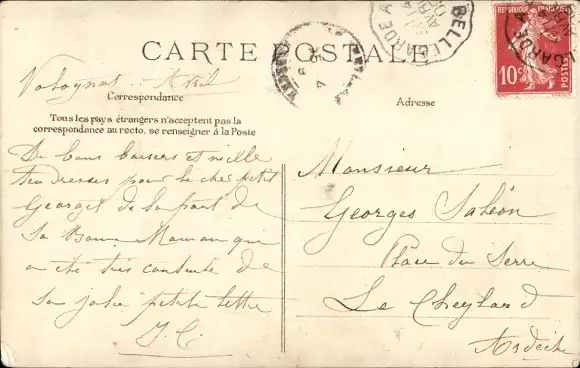 CARTE POSTALE
Correspondance
Adresse
Tous les pays étrangers n'acceptent pas la
correspondance au recto. se renseigner à la Poste
RÉPUBLIQUE FRANÇAISE
10c
POSTES
BELLEGARDE A
GARDE A
De bons baisers et mille
tendresses pour le cher petit
Georges de la part de
sa Bonne Maman qui
a été très contente de
sa jolie petite lettre
Monsieur
Georges
Place du Serre
Le Cheylard
Ardèche